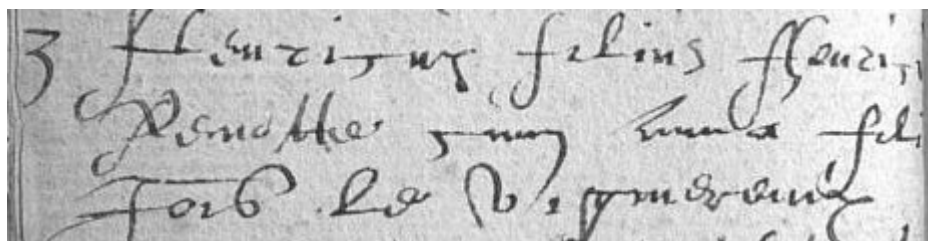 3 Henricus filius Henrici
Remotte cum anna fili
Jois le Vignereux